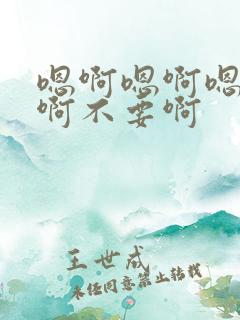 嗯啊嗯啊嗯
啊不要啊
王世成
未经同意禁止转载